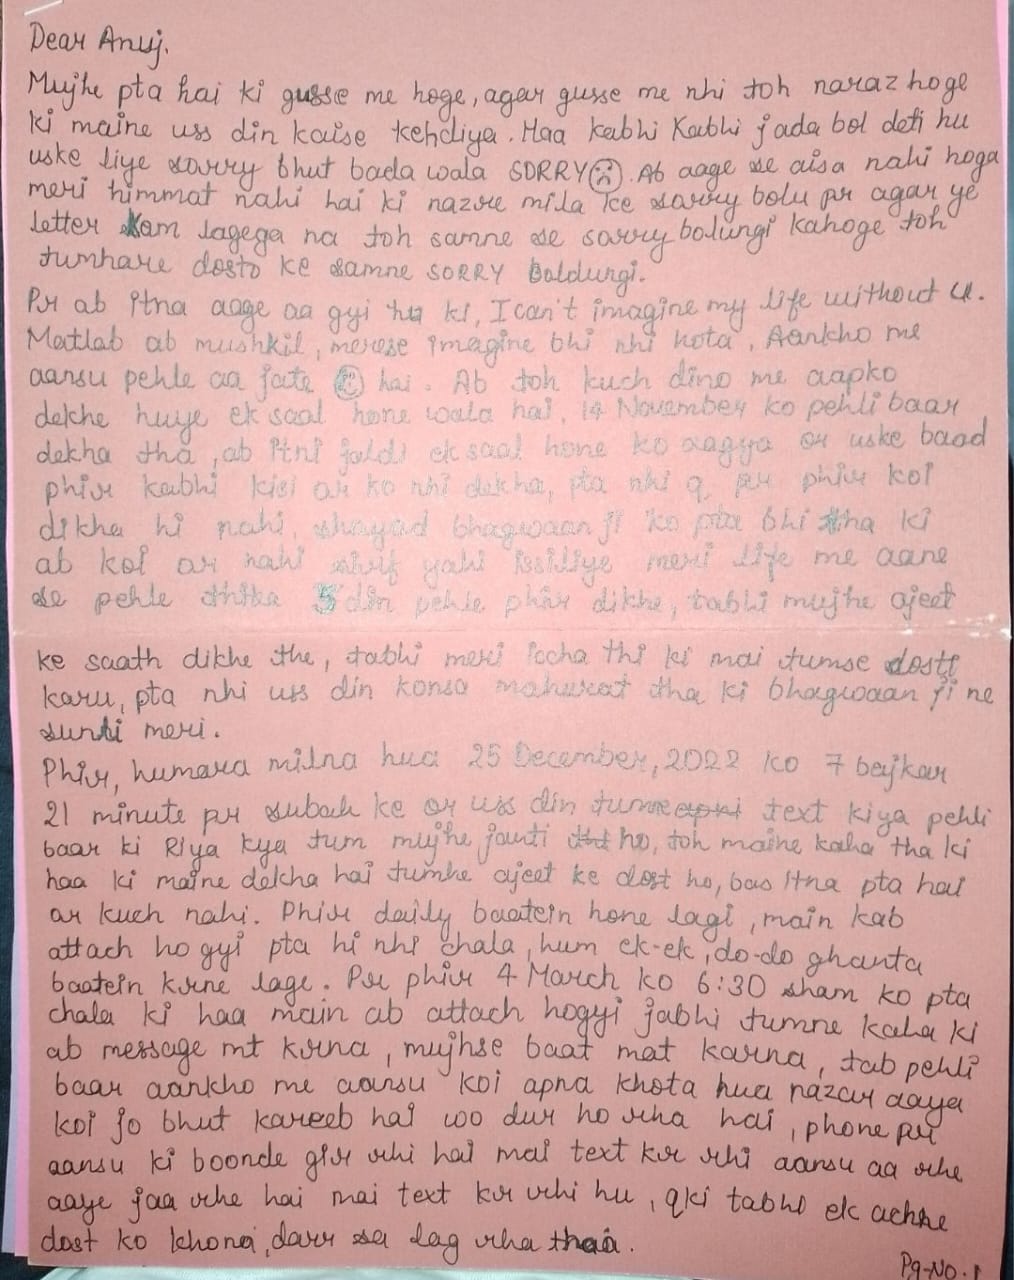 Dear Anuj,
Mujhe pta hai ki gusse me hoge, agar gusse me nhi toh naraz hoge
ki maine uss din kaise kehdiya. Haa kabhi kabhi jada bol deti hu
uske liye sorry bhut bada wala SORRY☹. Ab aage se aisa nahi hoga
meri himmat nahi hai ki nazre mila ke sorry bolu pr agar ye
letter kam lagega na toh samne se sorry bolungi kahoge toh
tumhare dosto ke samne SORRY boldungi.
Pr ab itna aage aa gyi hu ki, I can't imagine my life without U.
Matlab ab mushkil, merese imagine bhi nhi hota, Aankho me
aansu pehle aa jate ☹ hai. Ab toh kuch dino me aapko
dekhe huye ek saal hone wala hai, 14 November ko pehli baar
dekha tha, ab itni jaldi ek saal hone ko aagya or uske baad
phir kabhi kisi or ko nhi dekha, pta nhi q pr phir koi
dikha hi nahi, shayad bhagwaan ji ko pta bhi tha ki
ab koi or nahi shirf yahi issiliye meri life me aane
se pehle thika 5 din pehle phir dikhe, tabhi mujhe ajeet
ke saath dikhe the, tabhi meri iccha thi ki mai tumse dosti
karu, pta nhi uss din konsa mahurat tha ki bhagwaan ji ne
sunli meri.
Phir, humara milna hua 25 December, 2022 ko 7 bajkar
21 minute pr subah ke or uss din tumne text kiya pehli
baar ki Riya kya tum mujhe janti ho, toh maine kaha tha ki
haa ki maine dekha hai tumhe ajeet ke dost ho, bas itna pta hai
or kuch nahi. Phir daily baatein hone lagi, main kab
attach ho gyi pta hi nhi chala, hum ek-ek, do-do ghanta
baatein krne lage. Pr phir 4 March ko 6:30 sham ko pta
chala ki haa main ab attach hogyi jabhi tumne kaha ki
ab message mt krna, mujhse baat mat karna, tab pehli
baar aankho me aansu koi apna khota hua nazar aaya
koi jo bhut kareeb hai woo dur ho rha hai, phone pr
aansu ki boonde gir rhi hai mai text kr rhi aansu aa rhe
aaye jaa rhe hai mai text kr rhi hu, qki tabhi ek achhe
dost ko khona, darr sa lag rha thaa.
Pg-No. 1